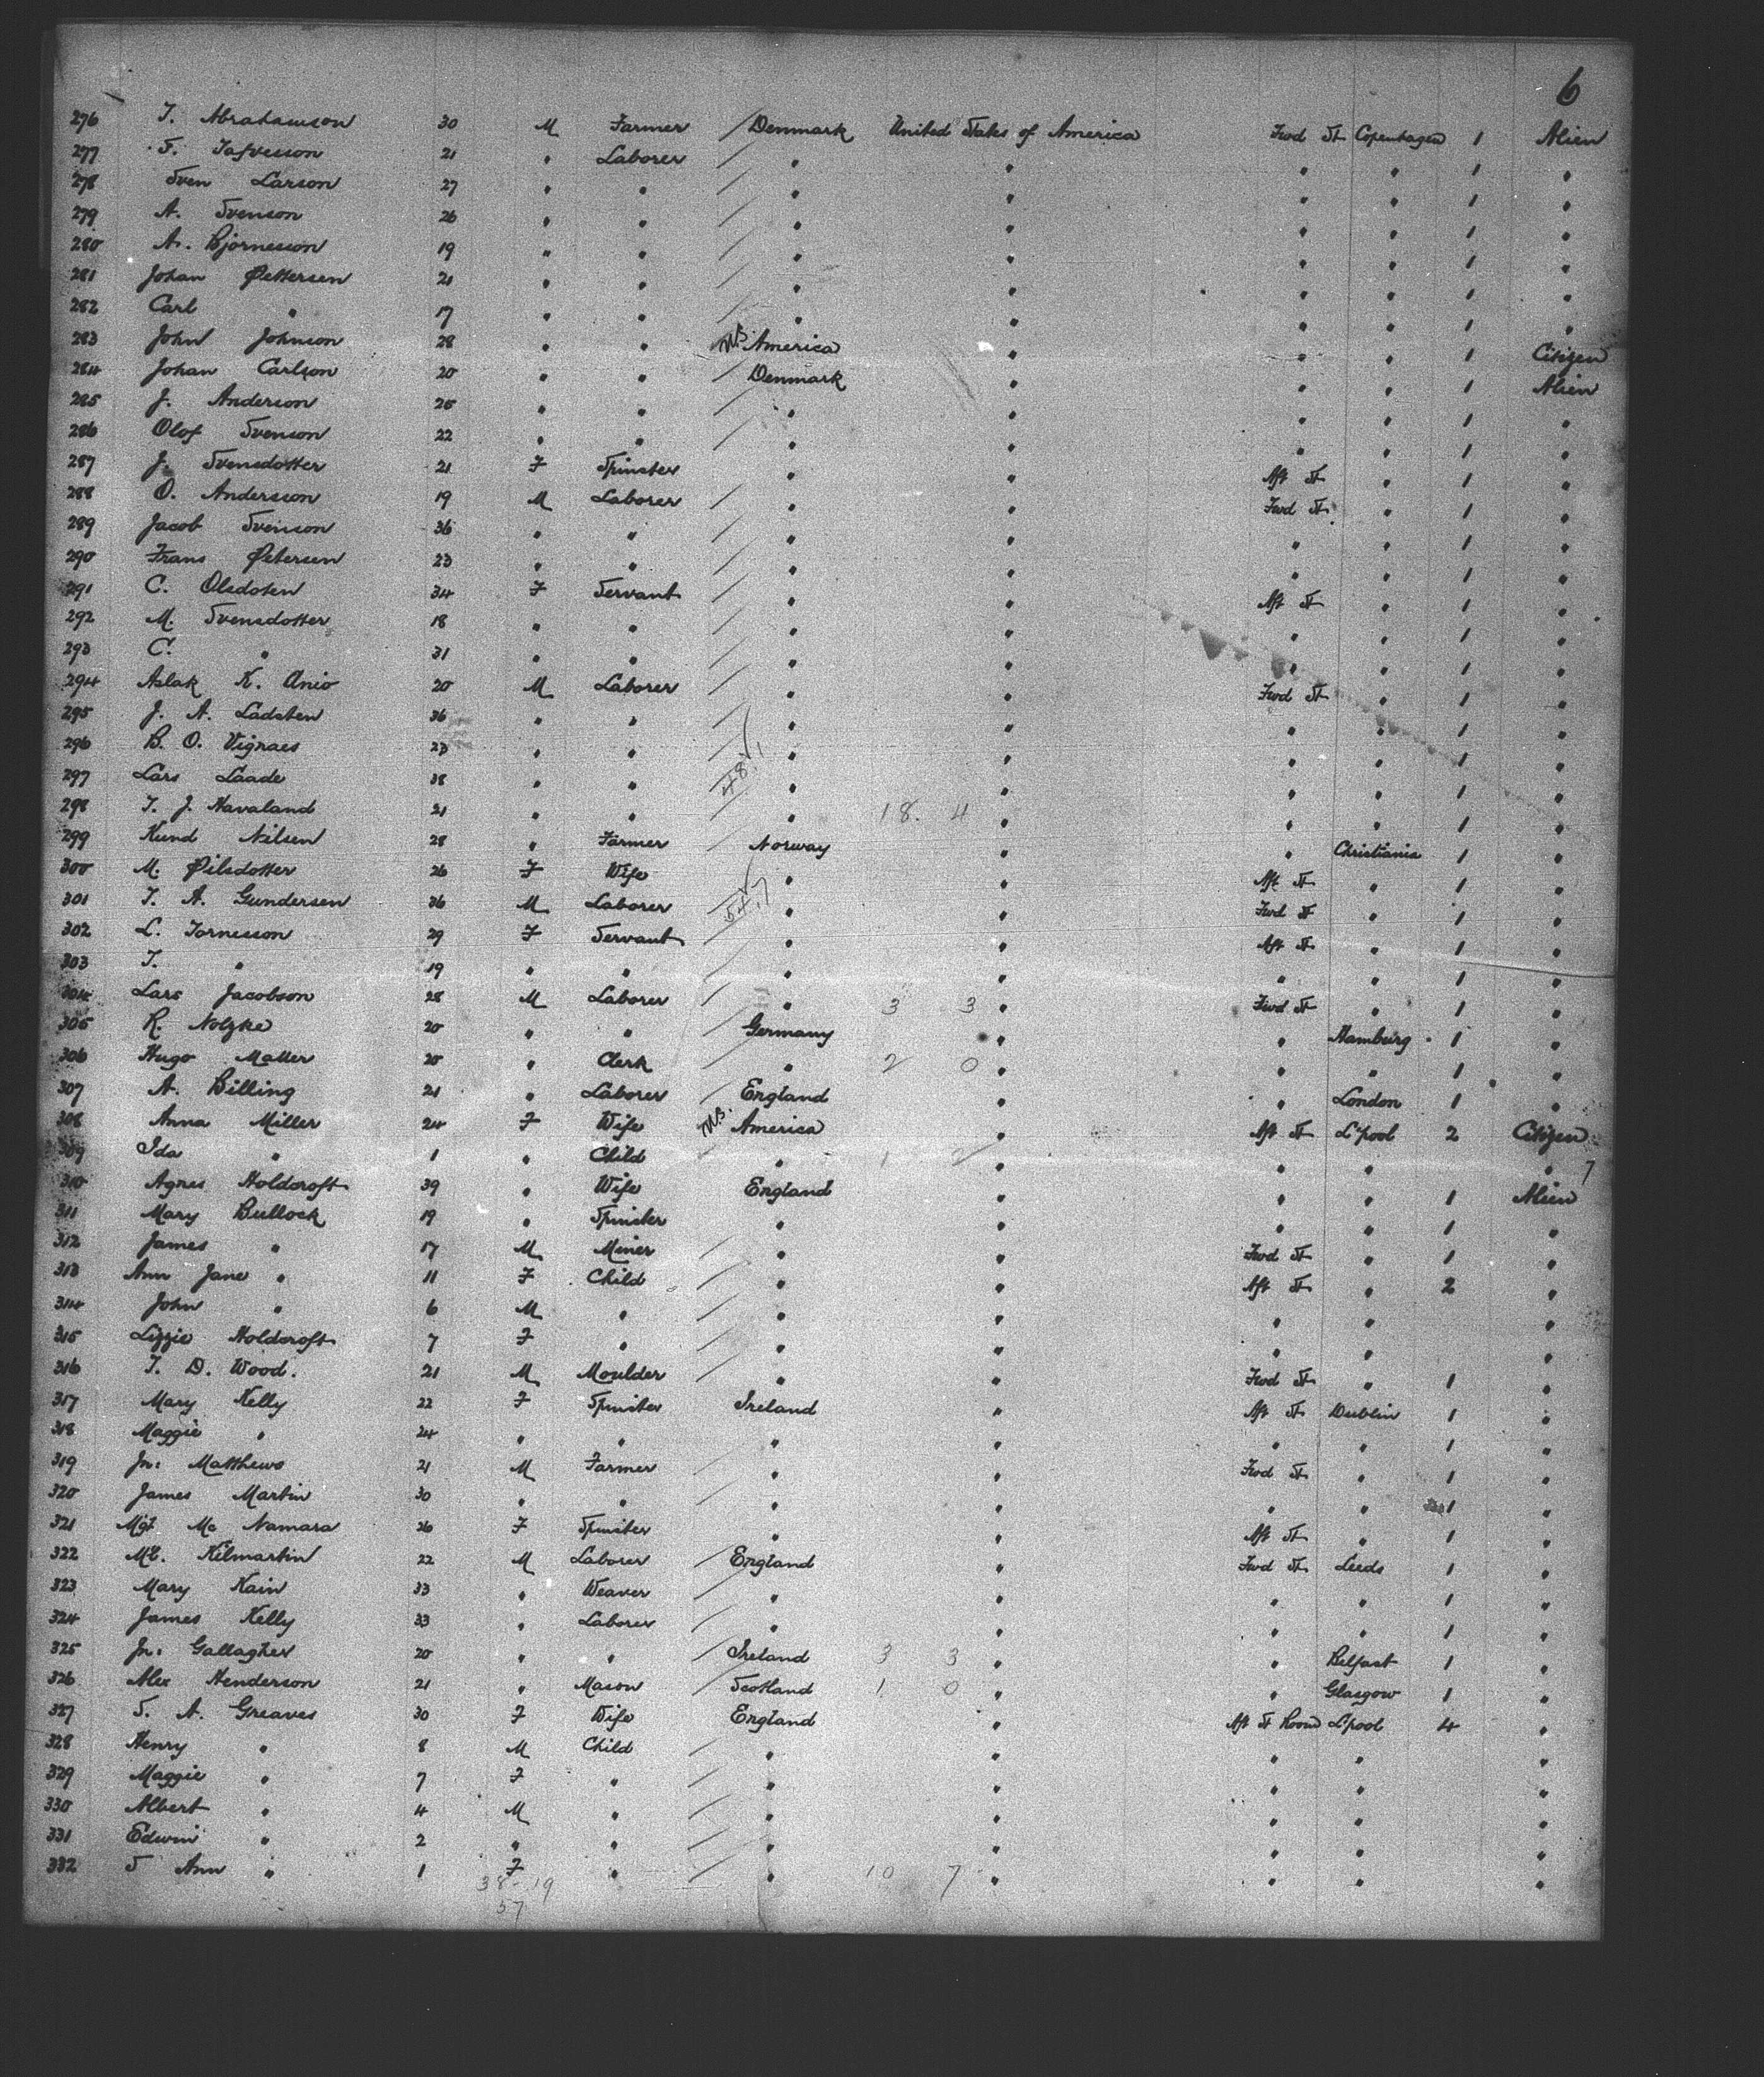 6
276 T. Abrahamson 30 M Farmer Denmark United States of America Fwd St Copenhagen 1 Alien
277 S. Tafvesson 21 " Laborer " " " " 1 "
278 Sven Larson 27 " " " " " " 1 "
279 A. Svenson 26 " " " " " " 1 "
280 A. Bjornesson 19 " " " " " " 1 "
281 Johan Pettersen 21 " " " " " " 1 "
282 Carl " 17 " " " " " " 1 "
283 John Johnson 28 " " America " " " 1 Citizen
284 Johan Carlson 20 " " Denmark " " " 1 Alien
285 J. Anderson 20 " " " " " " 1 "
286 Olof Svenson 22 " " " " " " 1 "
287 J. Svensdotter 21 F Spinster " " Aft St " 1 "
288 O. Anderson 19 M Laborer " " Fwd St " 1 "
289 Jacob Svenson 36 " " " " " " 1 "
290 Frans Petersen 23 " " " " " " 1 "
291 C. Olsdoten 34 F Servant " " Aft St " 1 "
292 M. Svensdotter 18 " " " " " " 1 "
293 C. " 31 " " " " " " 1 "
294 Aslak K. Anio 20 M Laborer " " Fwd St " 1 "
295 J. A. Ladsten 36 " " " " " " 1 "
296 B. O. Vignaes 23 " " " " " " 1 "
297 Lars Laade 38 " " " " " " 1 "
298 T. J. Havaland 21 " " " 18. 4 " " " 1 "
299 Kund Nilsen 28 " Farmer Norway " " Christiania 1 "
300 M. Pilsdotter 26 F Wife " " Aft St " 1 "
301 T. A. Gundersen 36 M Laborer " " Fwd St " 1 "
302 L. Tornesson 29 F Servant " " Aft St " 1 "
303 T. " 19 " " " " " " 1 "
304 Lars Jacobson 28 M Laborer " 3 3 " Fwd St " 1 "
305 R. Nolzke 20 " " Germany " " Hamburg 1 "
306 Hugo Matter 20 " Clerk " 2 0 " " " 1 "
307 A. Billing 21 " Laborer England " " London 1 "
308 Anna Miller 24 F Wife America " Aft St L'pool 2 Citizen
309 Ida " 1 " Child " 1 2 " " " "
310 Agnes Holdcroft 39 " Wife England " " " 1 Alien
311 Mary Bullock 19 " Spinster " " " " 1 "
312 James " 17 M Miner " " Fwd St " 1 "
313 Ann Jane " 11 F Child " " Aft St " 2 "
314 John " 6 M " " " " " "
315 Lizzie Holdcroft 7 F " " " " " "
316 T. D. Wood. 21 M Moulder " " Fwd St " 1 "
317 Mary Kelly 22 F Spinster Ireland " Aft St Dublin 1 "
318 Maggie " 24 " " " " " " 1 "
319 Jn: Matthews 21 M Farmer " " Fwd St " 1 "
320 James Martin 30 " " " " " " 1 "
321 Mgt Mc Namara 26 F Spinster " " Aft St " 1 "
322 Ml. Kilmartin 22 M Laborer England " Fwd St Leeds 1 "
323 Mary Kain 33 " Weaver " " " " 1 "
324 James Kelly 33 " Laborer " " " " 1 "
325 Jn: Gallagher 20 " " Ireland 3 3 " " Belfast 1 "
326 Alex Henderson 21 " Mason Scotland 1 0 " " Glasgow 1 "
327 S. A. Greaves 30 F Wife England " Aft St Room L'pool 4 "
328 Henry " 8 M Child " " " " "
329 Maggie " 7 F " " " " " "
330 Albert " 4 M " " " " " "
331 Edwin " 2 " " " " " " "
332 S Ann " 1 F " " 10 7 " " " "
38-19
57